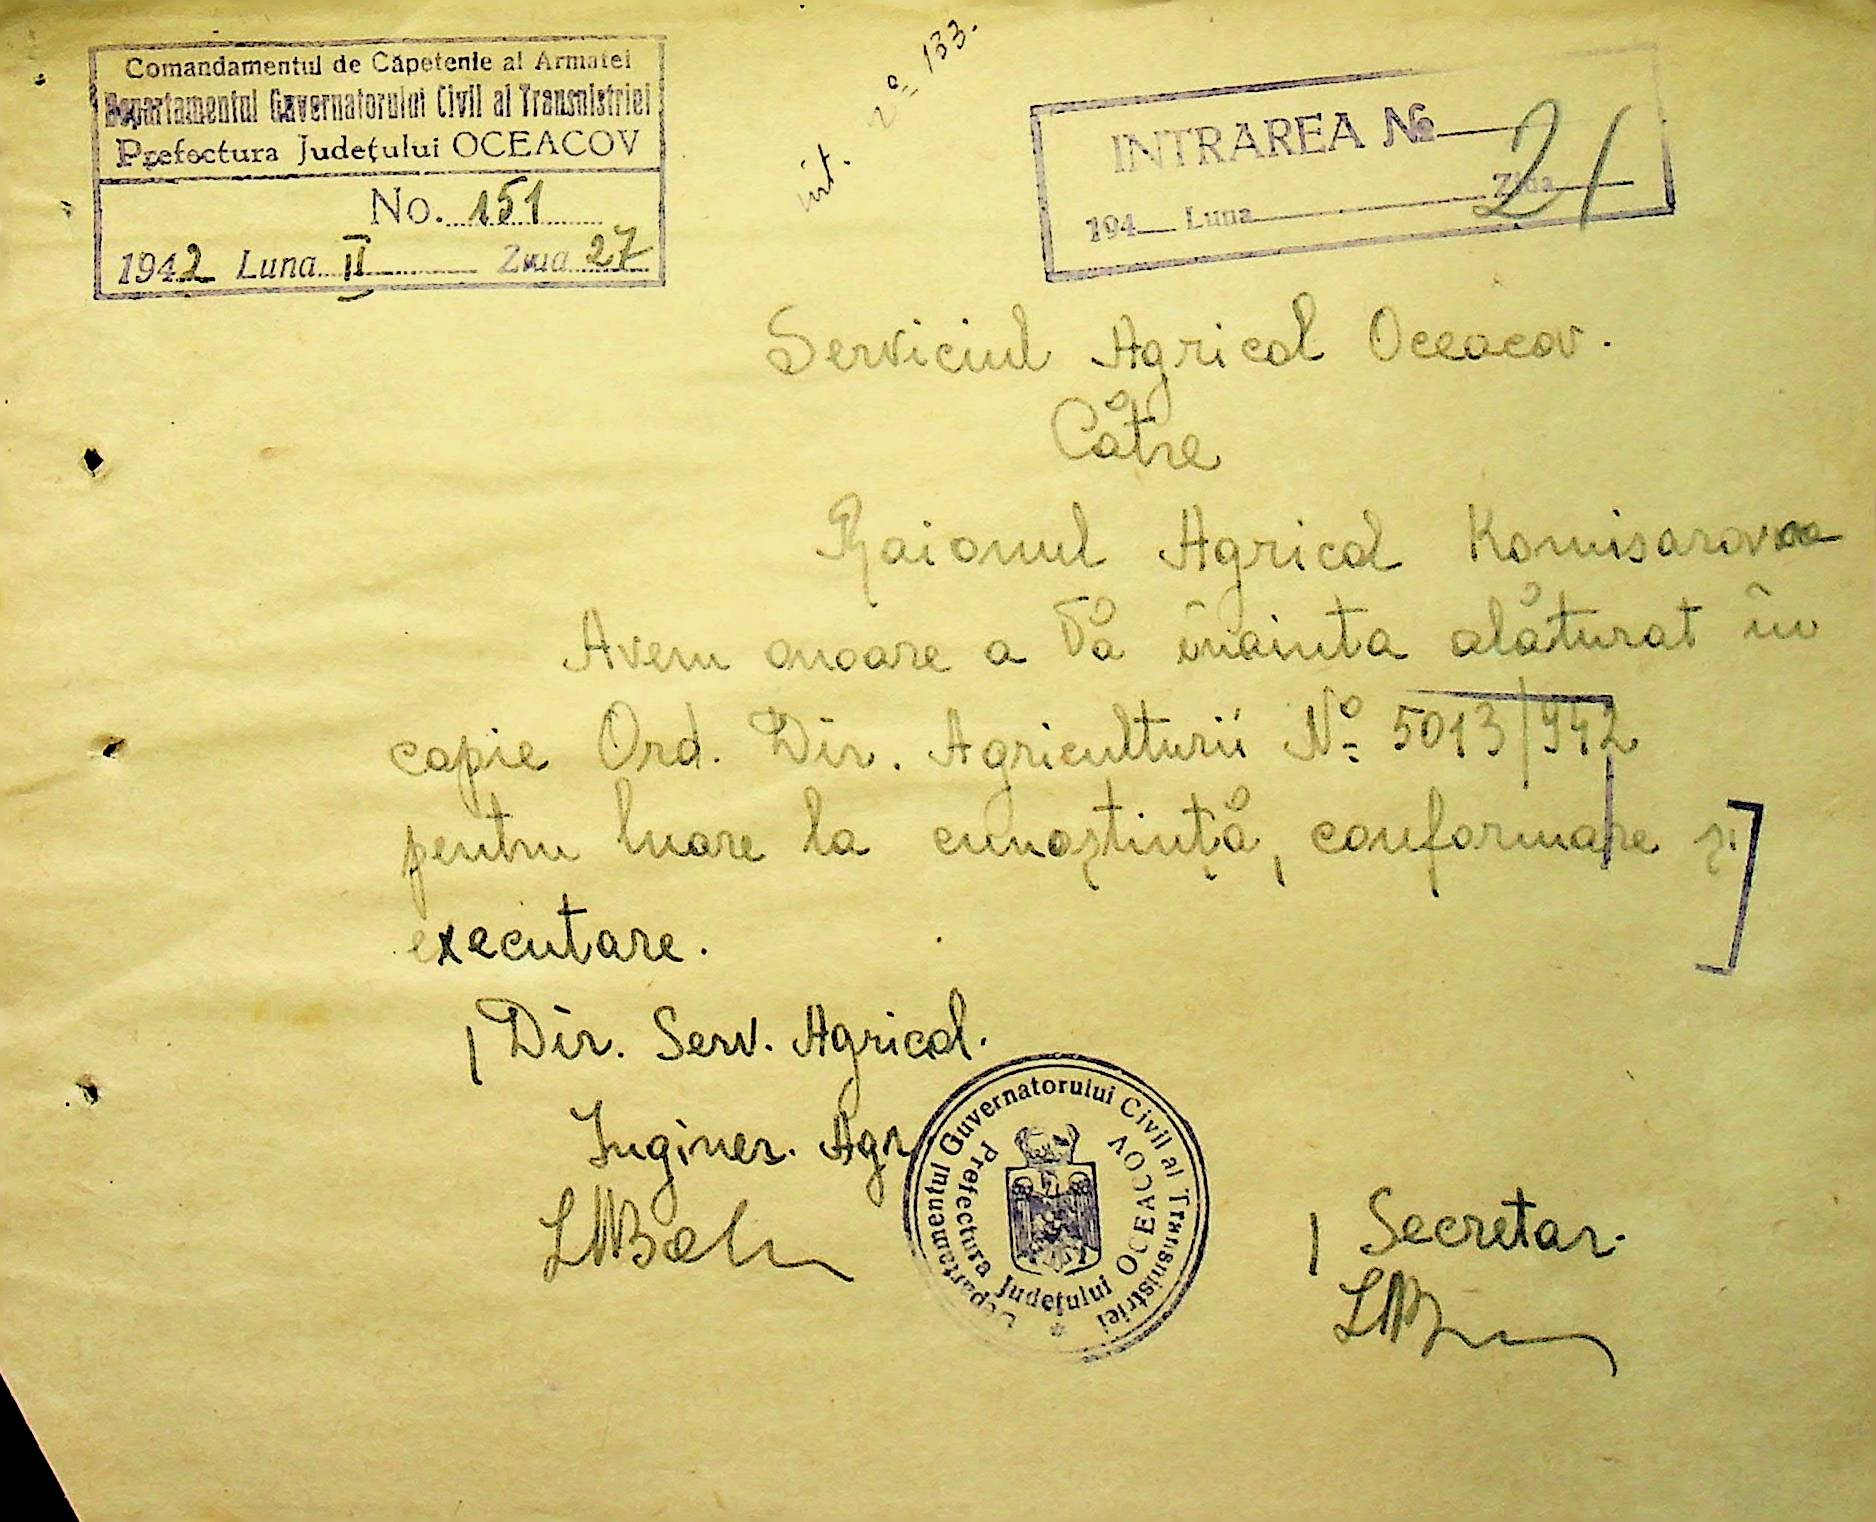 Comandamentul de Căpetenie al Armatei
Departamentul Guvernatorului Civil al Transnistriei
Prefectura Județului OCEACOV
No. 151
1942 Luna II Ziua 27
int. No 133.
INTRAREA No 21
194 Luna Ziua
Serviciul Agricol Oceacov.
Către
Raionul Agricol Komisarovca
Avem onoare a Vă înainta alăturat în
copie Ord. Dir. Agriculturii No 5013/942
pentru luare la cunoștință, conformare și
executare.
Dir. Serv. Agricol.
Inginer. Agr
Secretar.
Departamentul Guvernatorului Civil al Transnistriei
Prefectura Județului OCEACOV